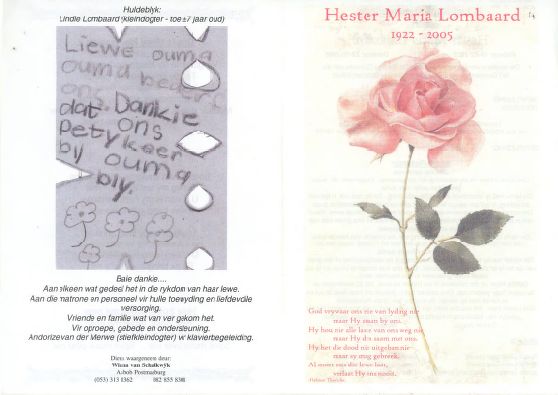 Huldeblyk:
Lindie Lombaard (kleindogter - toe ±7 jaar oud)
Liewe ouma
ouma beder
ons. Dankie
dat ons
Petykeer
by ouma
bly.
Baie dankie....
Aan elkeen wat gedeel het in die rykdom van haar lewe.
Aan die matrone en personeel vir hulle toewyding en liefdevolle
versorging.
Vriende en familie wat van ver gekom het.
Vir oproepe, gebede en ondersteuning.
Andorize van der Merwe (stiefkleindogter) vir klavierbegeleiding.
Diens waargeneem deur:
Wiens van Schalkwyk
Postmasburg
(053) 313 1362
Hester Maria Lombaard
1922 - 2005
God vrywaar ons nie van lyding nie
maar Hy staan by ons.
Hy hou nie alle laste van ons weg nie
maar Hy dra saam met ons.
Hy het die dood nie uitgeban nie
maar sy mag gebreek.
Al moet ons die lewe laat,
verlaat Hy ons nooit.